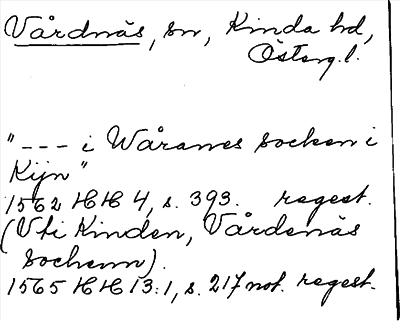 Vårdnäs, sn, Kinda hd,
Österg.l.
"--- i Wåranes socken i
Kijn"
1562 HH 4, s. 393. regest.
(Vti Kinden, Vårdenäs
sochenn).
1565 HH 13:1, s. 217 not. regest.